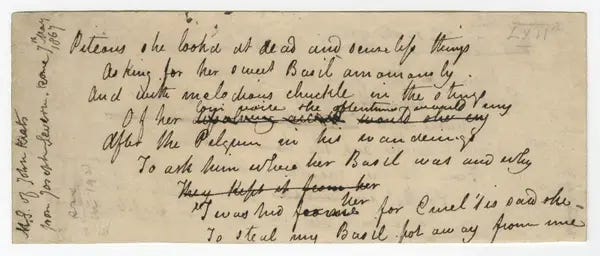 Piteous she lookd at dead and senseless things
Asking for her sweet Basil amorously.
And with melodious chuckle in the strings
lorn voice she oftentimes would
Of her would she cry
After the Pilgrim in his wanderings
To ask him where her Basil was and why
They kept it from her
her
'Twas hid for Cruel 'tis said she
To steal my Basil pot away from me
M.S. of John Keats
from Joseph Severn. Rome 7th May
1867